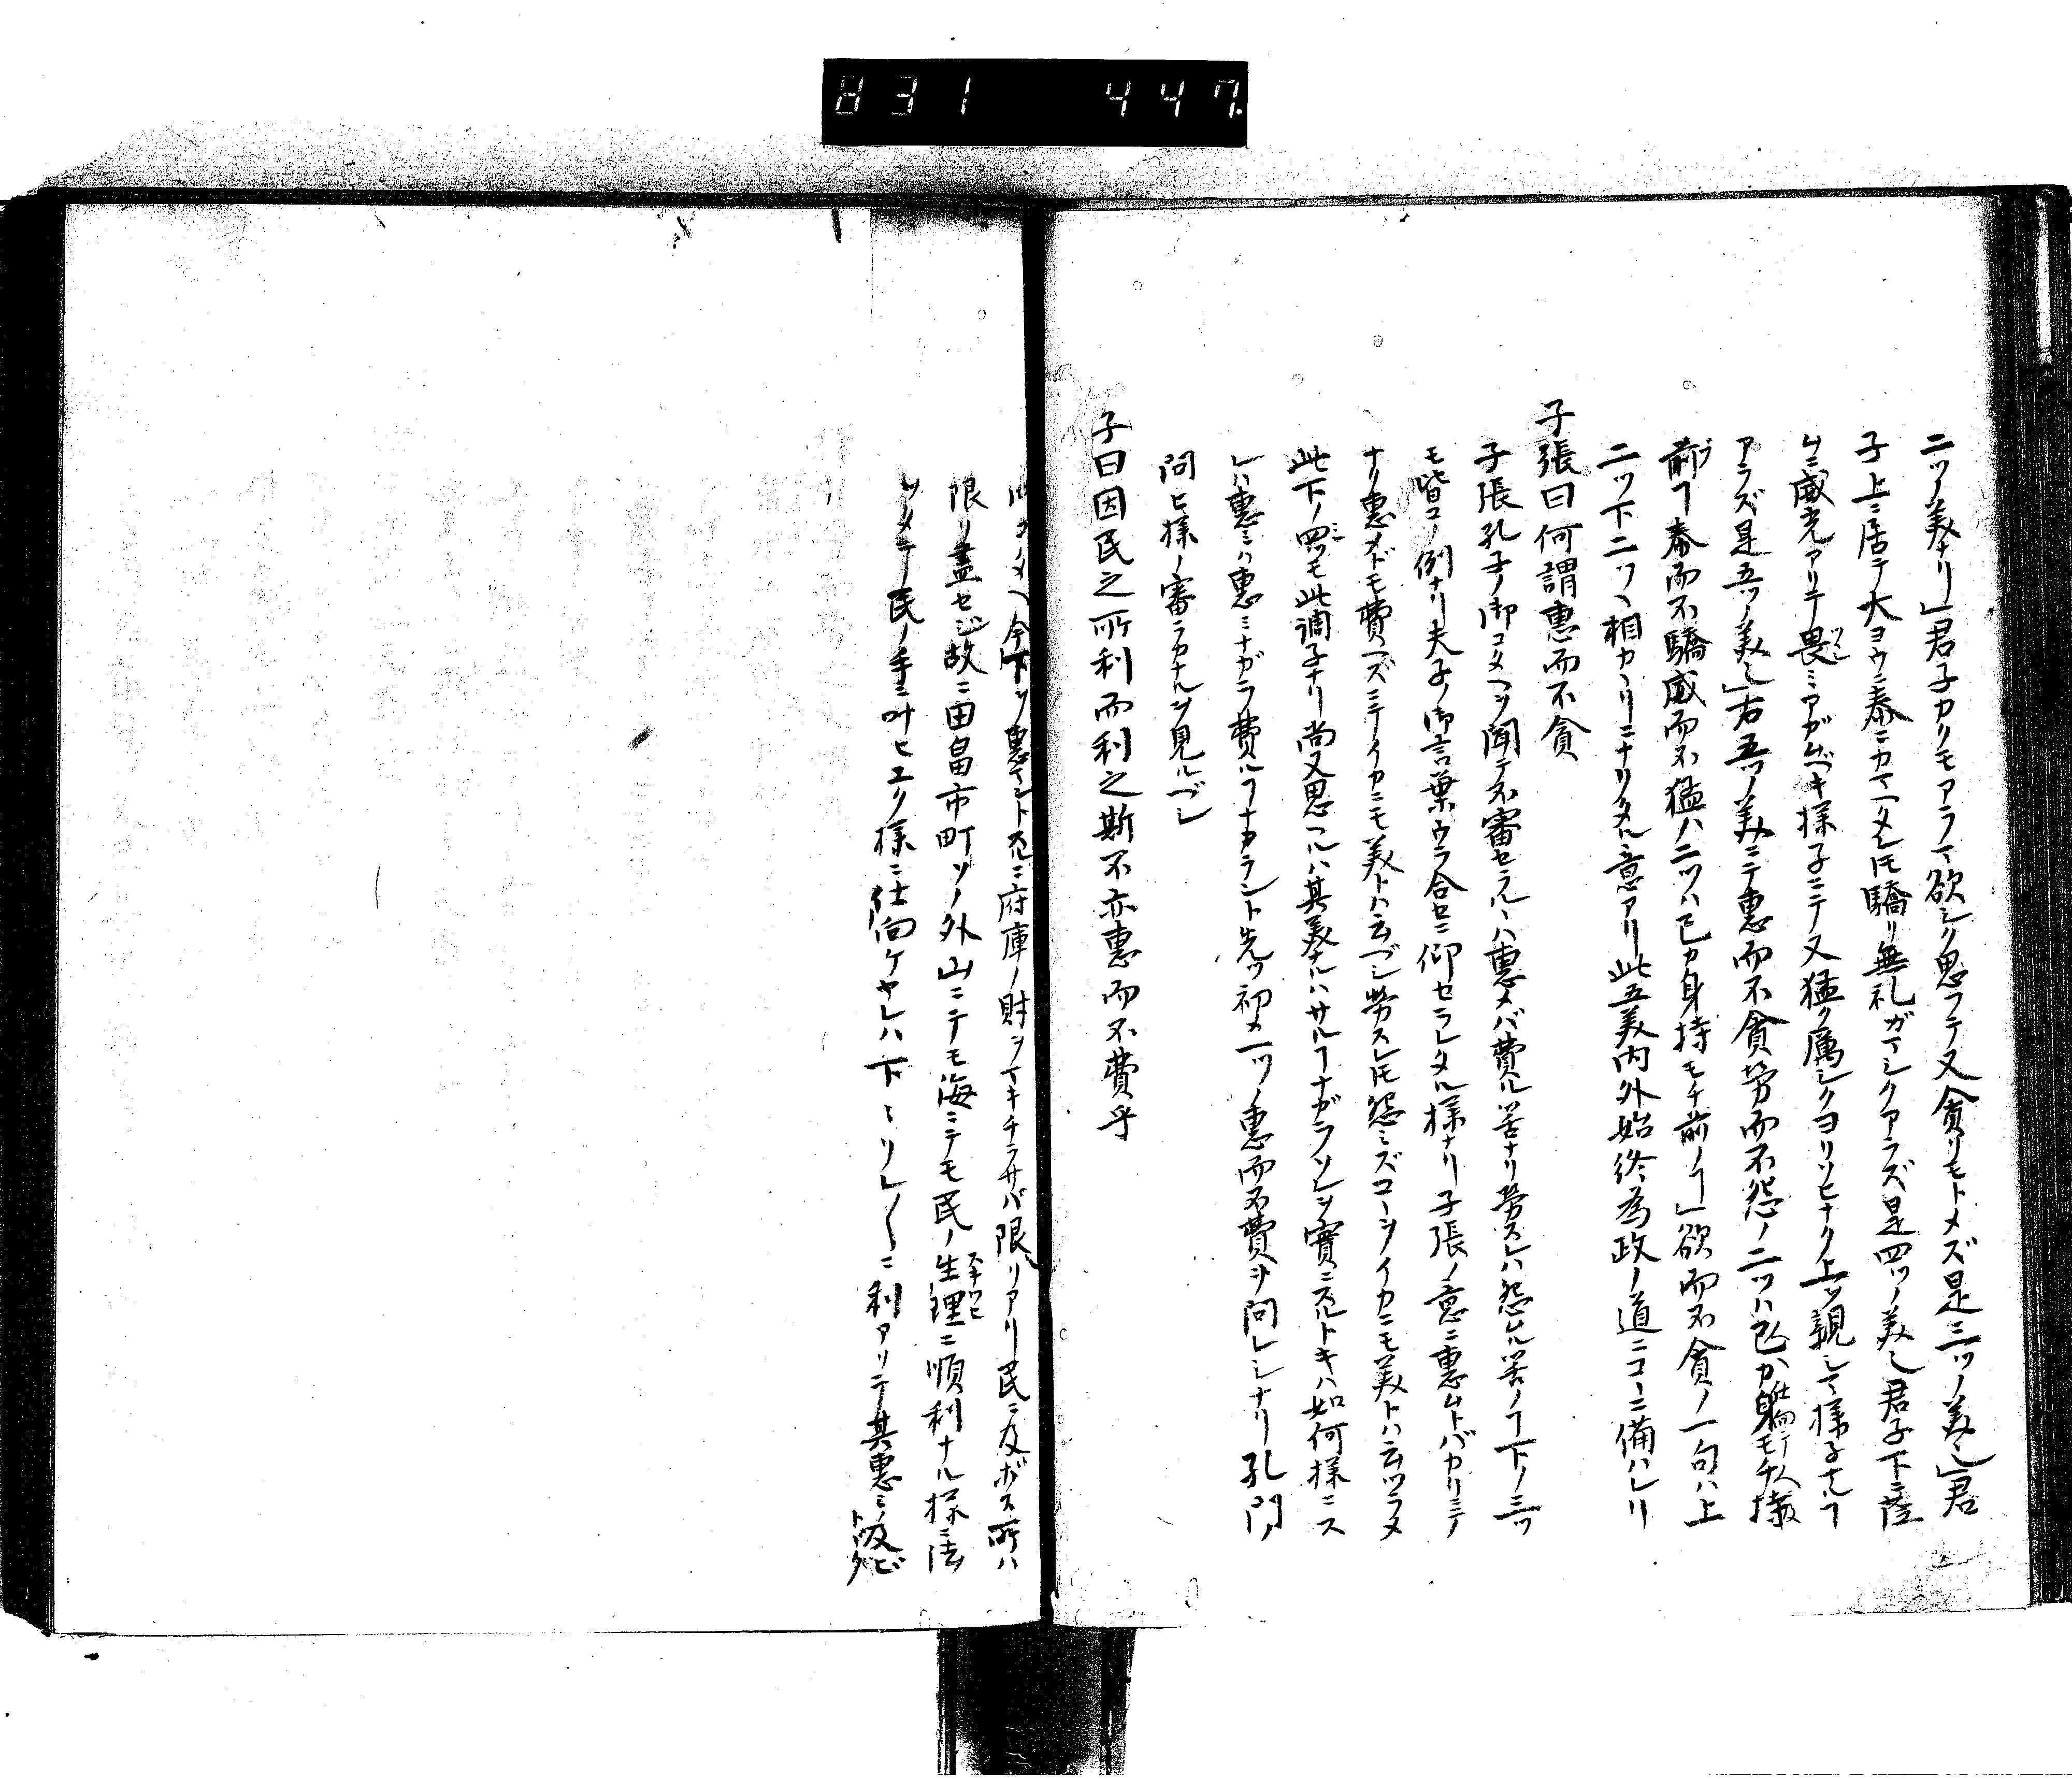 831 447
二ツノ美ナリ」君子カクモアラマ欲シク思フテ又貪リモトメズ是三ツノ美也」君
子上ニ居テ大ヨウニ泰ニカマヘタレ𪜈驕リ無礼ガマシクアラズ是四ツノ美也君子下ニ莅
ムニ威光アリテ畏ミアガムベキ様子ニテ又猛ク厲シクヨリソヒナク上ヲ親シマ様子ナルヿ
アラズ是五ツノ美也」右五ツノ美ニテ惠而不貪労而不怨ノ二ツハ己カ躬モチ人様
前ヿ泰而不驕威而不猛ハ二ツハ己カ身持モチ前ノヿ」欲而不貪ノ一句ハ上
二ツ下二ツヘ相カヽリニナリタル意アリ此五美内外始終為政ノ道ニコヽニ備ハレリ
子張曰何謂惠而不貪
子張孔子ノ御コタヘヲ聞テ不審セラルヽハ惠メバ費ル筈ナリ労スレハ怨ル筈ノヿ下ノ三ツ
モ皆コノ例ナリ夫子ノ御言葉ウラ合セニ仰セラレタル様ナリ子張ノ意ニ惠ムトバカリニテ
ナリ惠メドモ費ヘズニテイカニモ美トハ云ベシ労スレ𪜈怨ミズコヽヲイカニモ美トハ云ツラメ
此下ノ四ツモ此調子ナリ尚又思フルハ其美ナルハサルヿナガラソレヲ實ニスルトキハ如何様ニス
レハ惠ミハ惠ミナガラ費ルヿナカラント先ツ初メ一ツノ惠而不費ヲ問レシナリ孔門ノ
問ヒ様ノ審ラカナルヲ見ルベシ
子曰因民之所利而利之斯不亦惠而不費乎
今下ヲ惠マントスルニ府庫ノ財ヲマキチラサバ限リアリ民ニ及ボス所ハ
限リ盡セジ故ニ田畠市町ソノ外山ニテモ海ニテモ民ノ生理ニ順利ナル様ニ法
ツメテ民ノ手ニ叶ヒユク様ニ仕向ケヤレハ下ニソレ〳〵ニ利アリテ其惠ミノ及ビ
トヾク